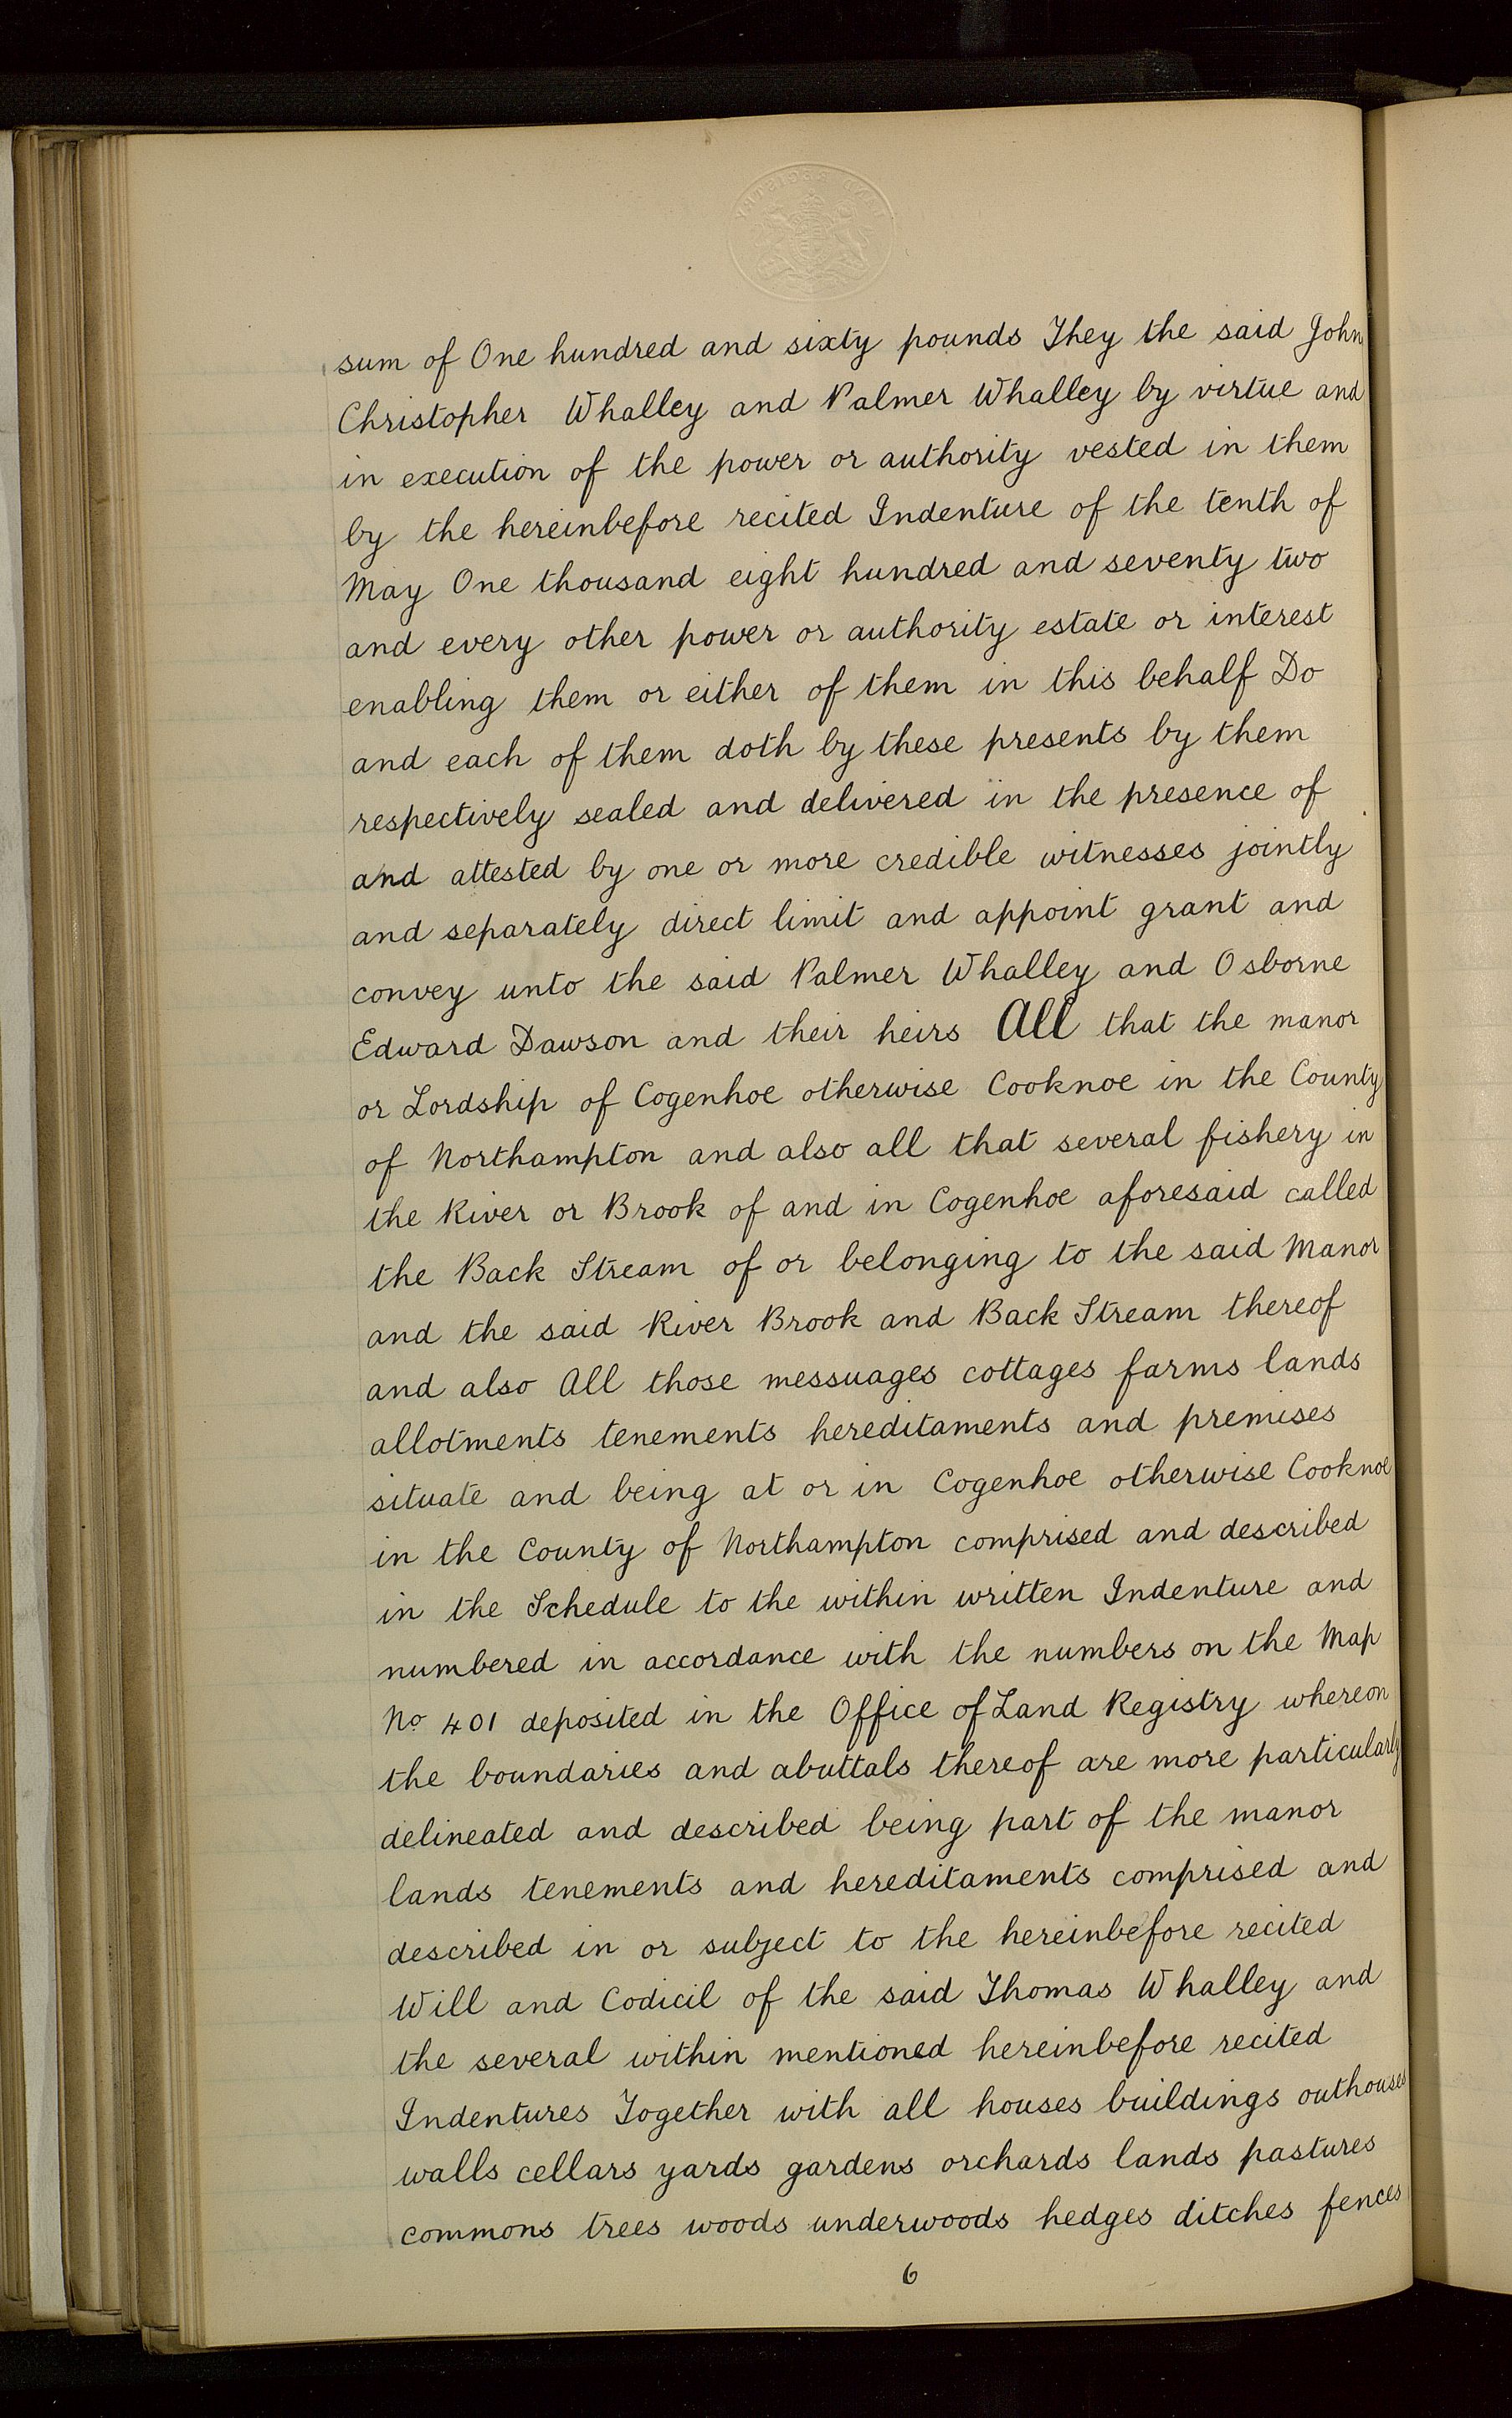 LAND REGISTRY
sum of One hundred and sixty pounds They the said John
Christopher Whalley and Palmer Whalley by virtue and
in execution of the power or authority vested in them
by the hereinbefore recited Indenture of the tenth of
May One thousand eight hundred and seventy two
and every other power or authority estate or interest
enabling them or either of them in this behalf Do
and each of them doth by these presents by them
respectively sealed and delivered in the presence of
and attested by one or more credible witnesses jointly
and separately direct limit and appoint grant and
convey unto the said Palmer Whalley and Osborne
Edward Dawson and their heirs All that the manor
or Lordship of Cogenhoe otherwise Cooknoe in the County
of Northampton and also all that several fishery in
the River or Brook of and in Cogenhoe aforesaid called
the Back Stream of or belonging to the said Manor
and the said River Brook and Back Stream thereof
and also All those messuages cottages farms lands
allotments tenements hereditaments and premises
situate and being at or in Cogenhoe otherwise Cooknoe
in the County of Northampton comprised and described
in the Schedule to the within written Indenture and
numbered in accordance with the numbers on the Map
No 401 deposited in the Office of Land Registry whereon
the boundaries and abuttals thereof are more particularly
delineated and described being part of the manor
lands tenements and hereditaments comprised and
described in or subject to the hereinbefore recited
Will and Codicil of the said Thomas Whalley and
the several within mentioned hereinbefore recited
Indentures Together with all houses buildings outhouses
walls cellars yards gardens orchards lands pastures
commons trees woods underwoods hedges ditches fences
6